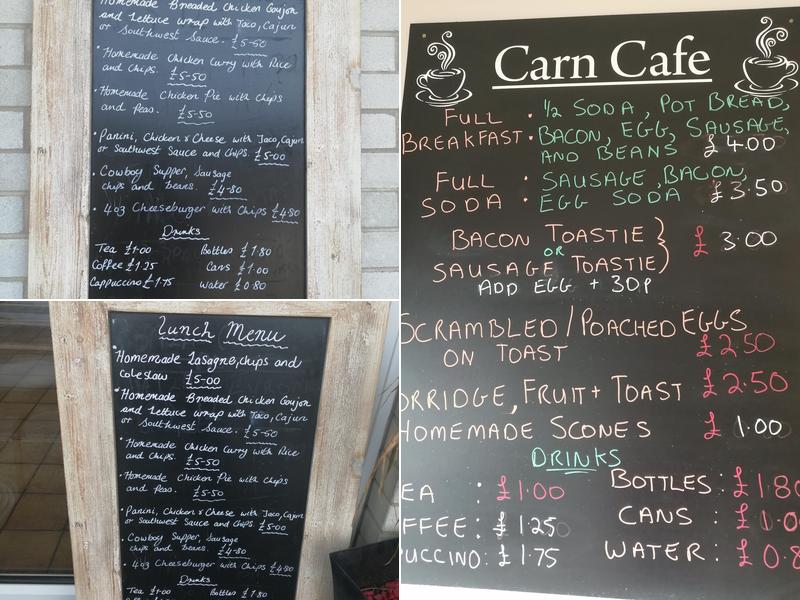 Homemade Breaded Chicken Goujon
and Lettuce wrap with Taco, Cajun
or Southwest Sauce. £5-50
• Homemade Chicken Curry with Rice
and Chips. £5-50
• Homemade Chicken Pie with Chips
and Peas. £5-50
• Panini, Chicken & Cheese with Taco, Cajun
or Southwest Sauce and Chips. £5-00
• Cowboy Supper, Sausage
chips and beans. £4-80
• 4oz Cheeseburger with Chips £4-80
Drinks
Tea £1-00 Bottles £1.80
Coffee £1.25 Cans £1.00
Cappuccino £1.75 Water £0.80
Lunch Menu
Homemade Lasagne, chips and
coleslaw £5-00
• Homemade Breaded Chicken Goujon
and Lettuce wrap with Taco, Cajun
or Southwest Sauce. £5-50
• Homemade Chicken Curry with Rice
and Chips. £5-50
• Homemade Chicken Pie with Chips
and Peas. £5-50
• Panini, Chicken & Cheese with Taco, Cajun
or Southwest Sauce and Chips. £5-00
• Cowboy Supper, Sausage
chips and beans. £4-80
• 4oz Cheeseburger with Chips £4-80
Drinks
Tea £1-00 Bottles £1.80
Carn Cafe
FULL BREAKFAST : 1/2 SODA, POT BREAD,
BACON, EGG, SAUSAGE,
AND BEANS £4.00
FULL SODA : SAUSAGE, BACON,
EGG SODA £3.50
BACON TOASTIE
OR
SAUSAGE TOASTIE } £3.00
ADD EGG + 30P
SCRAMBLED / POACHED EGGS
ON TOAST £2.50
ORRIDGE, FRUIT + TOAST £2.50
HOMEMADE SCONES £1.00
DRINKS
EA : £1.00 BOTTLES : £1.80
FFEE : £1.25 CANS : £1.0
UCCINO : £1.75 WATER : £0.8